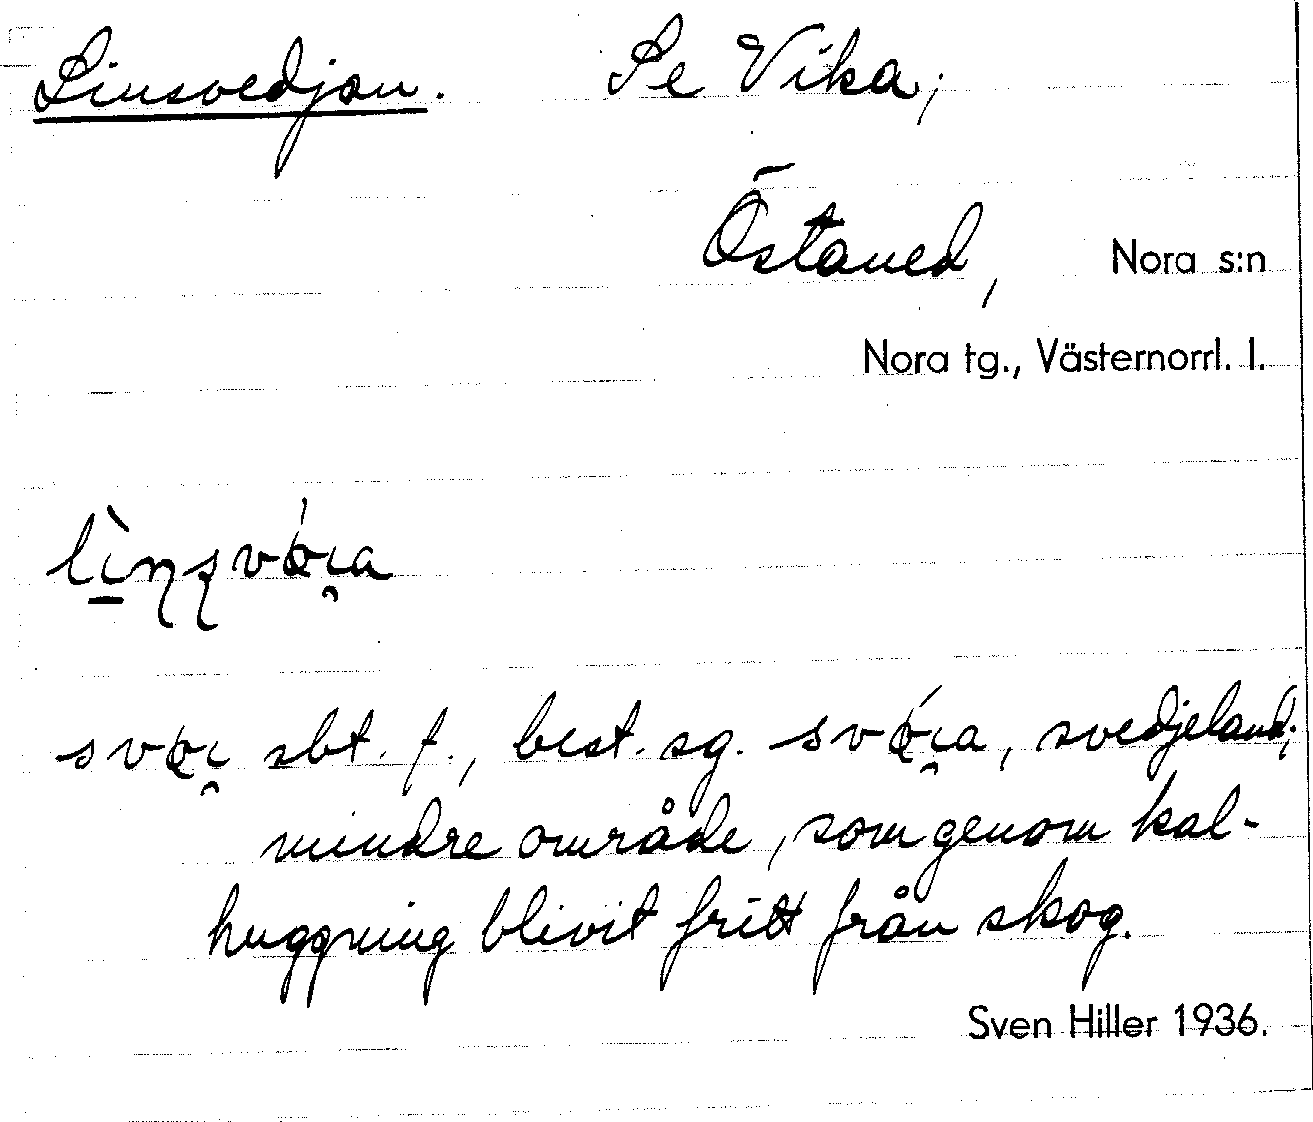 Linsvedjan. Se Vika,
Östaned, Nora s:n
Nora tg., Västernorrl. l.
sbt. f., best. sg. svedjeland;
mindre område, som genom kal-
huggning blivit fritt från skog.
Sven Hiller 1936.